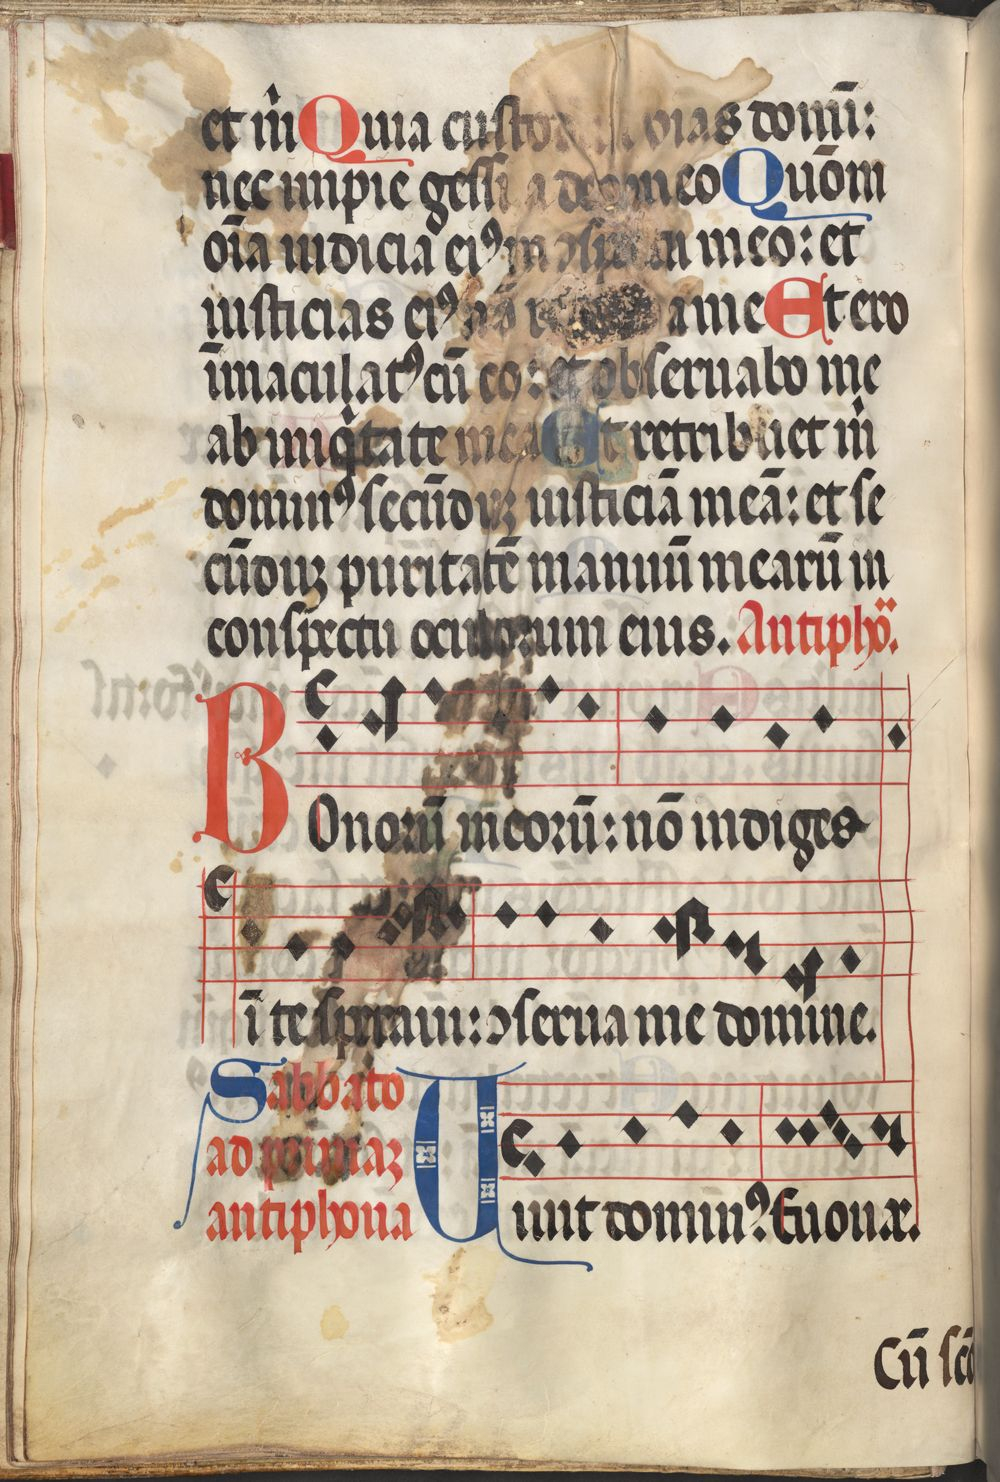 et m̄ Quia custodiui uias domī:
nec impie gessi a deo meo Quōm
oīa iudicia eiꝰ in ↄspectu meo: et
iusticias eiꝰ nō a me Et ero
īmaculatꝰ cū eo: et obseruabo me
ab iniq̇tate mea Et retribuet m̄
dominꝰ secūduꝫ iusticiā meā: et se
cūduꝫ puritatē manuū mearū in
conspectu oculorum eius. Antiphoͣ.
BOnorū meorū: nō indiges
ī te speraui: ↄserua me domine.
Sabbato
ad primaꝫ
antiphona
Uiuit dominꝰ. Euouae.
Cū scō